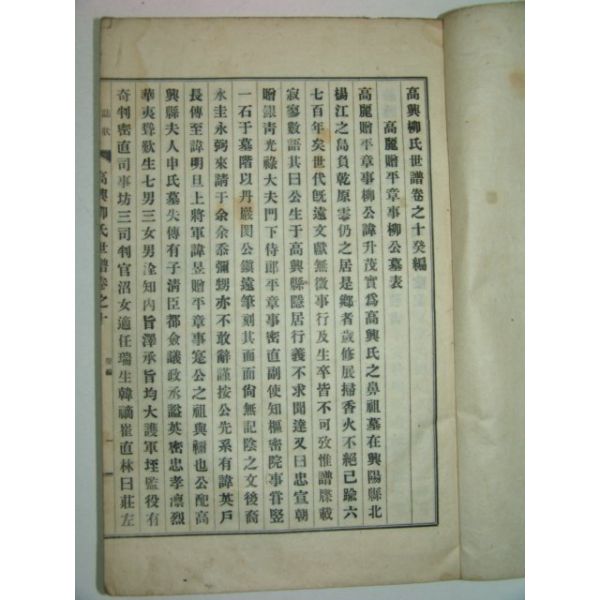 高興柳氏世譜卷之十癸編
高麗贈平章事柳公墓表
高麗贈平章事柳公諱升茂實爲高興氏之鼻祖墓在興陽縣北
楊江之島負乾原雲仍之居是鄉者歲修展掃香火不絕已踰六
七百年矣世代旣遠文獻無徵事行及生卒皆不可攷惟譜牒載
寂寥數語其曰公生于高興縣隱居行義不求聞達又曰忠宣朝
贈銀靑光祿大夫門下侍郎平章事密直副使知樞密院事甞竪
一石于墓階以丹嚴閔公鎭遠筆刻其面而尙無記陰之文後裔
永圭永弼來請于余余忝彌甥亦不敢辭謹按公先系有諱英戶
長傳至諱明旦上將軍諱昱贈平章事寔公之祖與禰也公配高
興縣夫人申氏墓失傳有子淸臣都僉議政丞謚英密忠孝凛烈
華夷聳歎生七男三女男洤知內旨澤承旨均大護軍垤監役有
奇判密直司事坊三司判官沼女適任瑞生韓禰崔直林曰莊左
誌狀
高興柳氏世譜卷之十